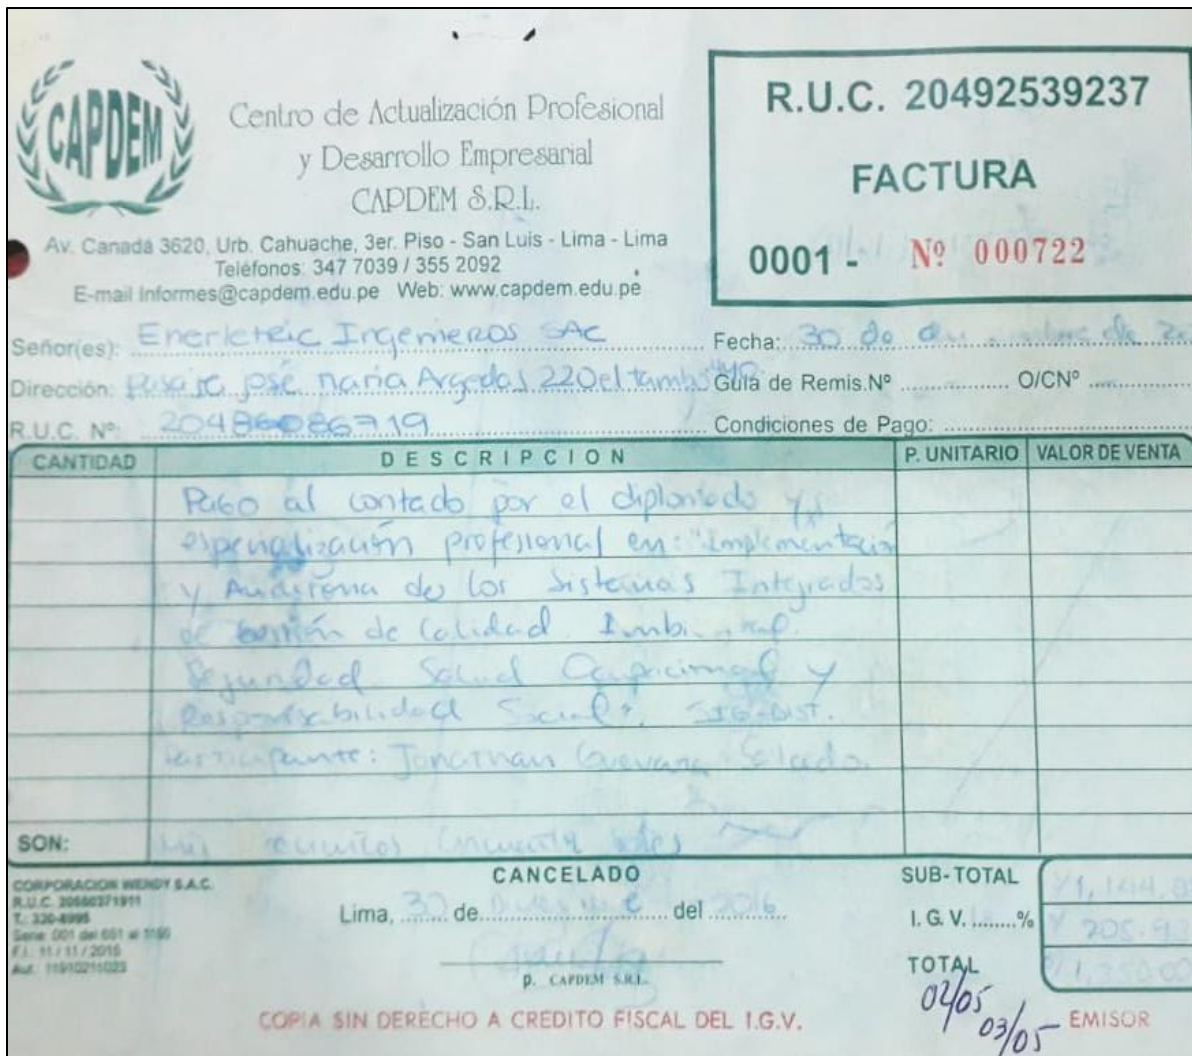 CAPDEM
Centro de Actualización Profesional
y Desarrollo Empresarial
CAPDEM S.R.L.
Av. Canadá 3620, Urb. Cahuache, 3er. Piso - San Luis - Lima - Lima
Teléfonos: 347 7039 / 355 2092
E-mail Informes@capdem.edu.pe Web: www.capdem.edu.pe
R.U.C. 20492539237
FACTURA
0001 - Nº 000722
Señor(es): Ingenieros SAC
Fecha: 30 de
Dirección: José María 220 el tambo
Guía de Remis.Nº O/CNº
R.U.C. Nº: 20486086719
Condiciones de Pago:
CANTIDAD DESCRIPCION P. UNITARIO VALOR DE VENTA
Pago al contado por el diplomado y
especialización profesional en: "Implementación
y Auditoría de los Sistemas Integrados
de Gestión de Calidad
Seguridad Salud Ocupacional y
Responsabilidad Social".
Participante: Jonathan Guevara
SON:
CORPORACION WENDY S.A.C.
T.: 320-4995
F.I.: 11 / 11 / 2015
CANCELADO
Lima, 30 de del 2016
p. CAPDEM S.R.L.
SUB-TOTAL
I. G. V. ........%
TOTAL 1,350.00
02/05
03/05
COPIA SIN DERECHO A CREDITO FISCAL DEL I.G.V.
EMISOR